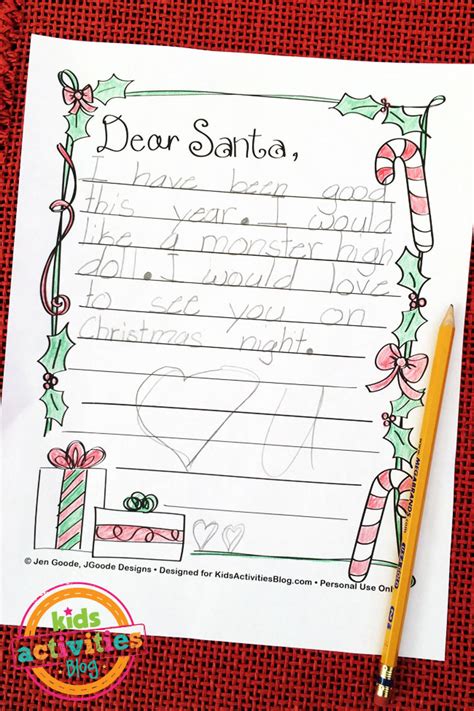 Dear Santa,
I have been good
this year. I would
like a monster high
doll. I would love
to see you on
Christmas night.
U
© Jen Goode, JGoode Designs • Designed for KidsActivitiesBlog.com • Personal Use Onl
kids
activities
Blog
MEGABRANDS.COM